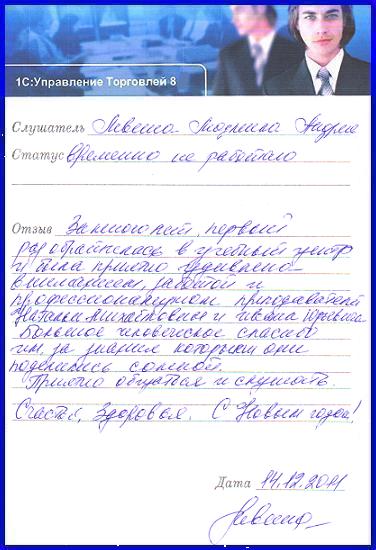 1С:Управление Торговлей 8
Слушатель Людмила
Статус временно не работаю
Отзыв За много лет, первый
раз обратилась в учебный центр
и была приятно удивлена
вниманием, заботой и
профессионализмом преподавателей
Натальи Михайловны и
Большое человеческое спасибо
им, за знания которыми они
поделились со мной.
Приятно общаться и слушать.
Счастья, Здоровья. С Новым годом!
Дата 14.12.2011